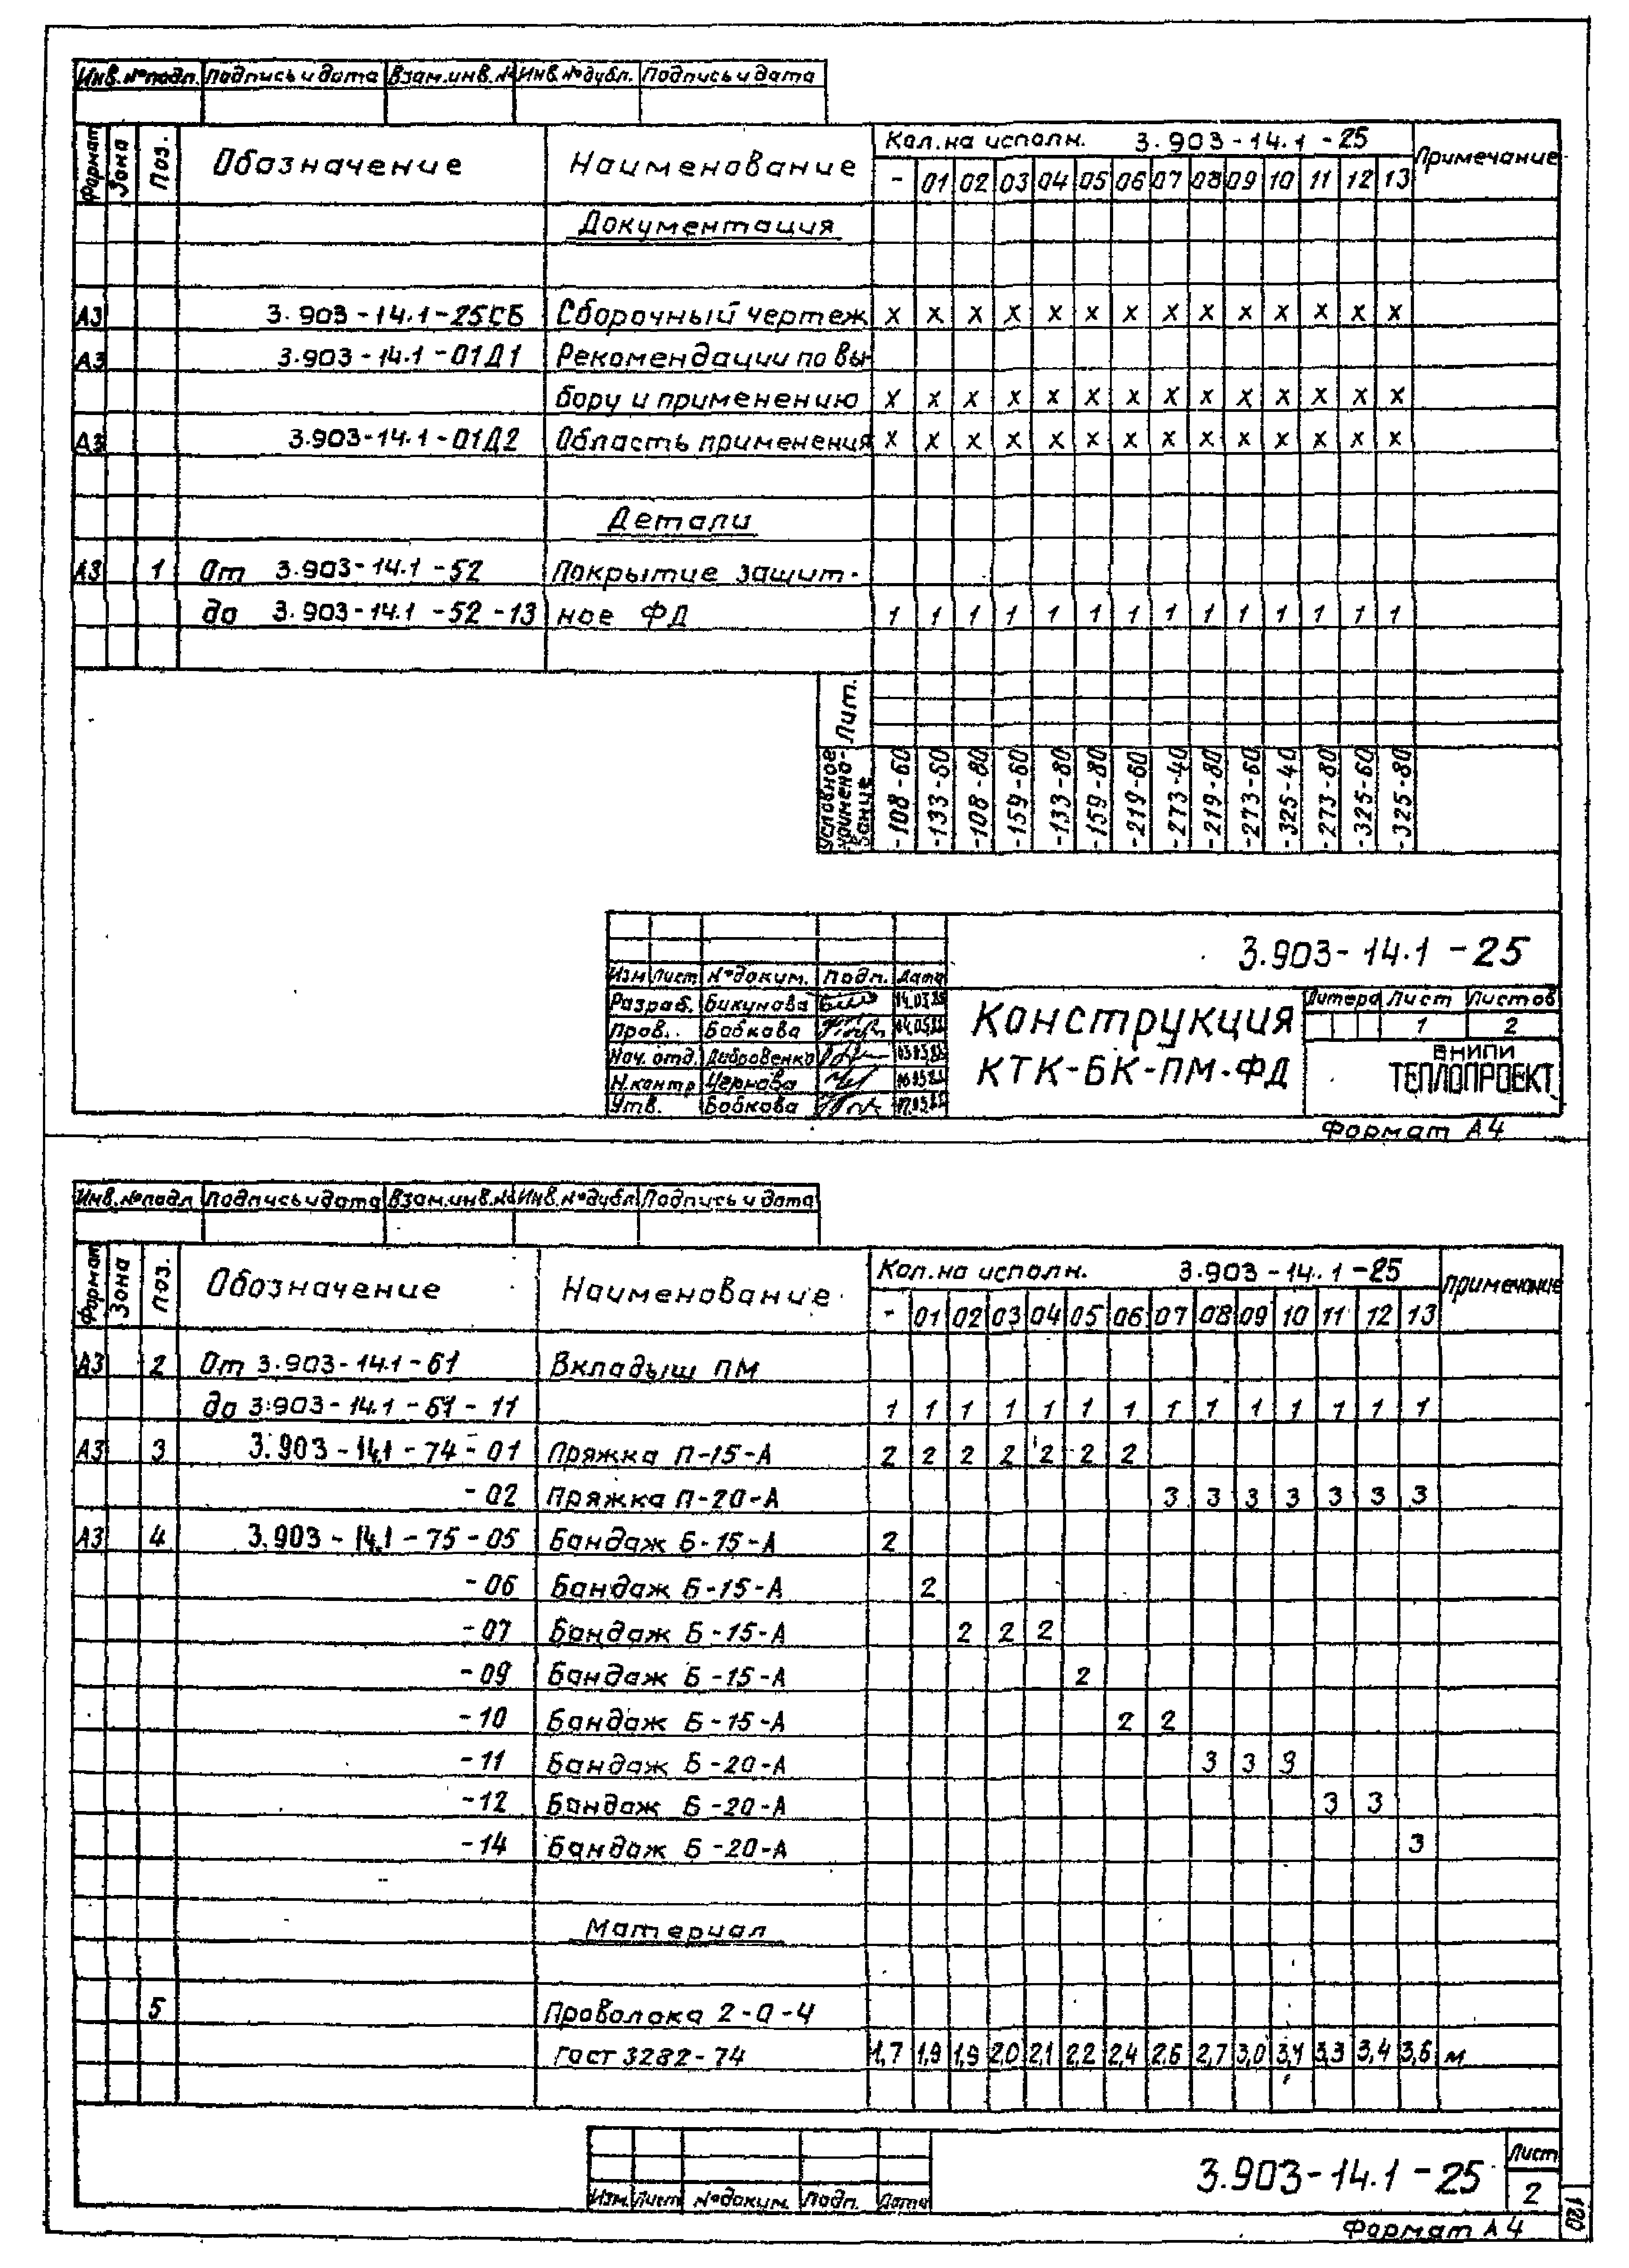 Инв.№подл. Подпись и дата Взам.инв.№ Инв.№дубл. Подпись и дата
Формат Зона Поз. Обозначение Наименование Кол.на исполн. 3.903-14.1-25 Примечание
- 01 02 03 04 05 06 07 08 09 10 11 12 13
Документация
А3 3.903-14.1-25СБ Сборочный чертеж х х х х х х х х х х х х х х
А3 3.903-14.1-01Д1 Рекомендации по вы-
бору и применению х х х х х х х х х х х х х х
А3 3.903-14.1-01Д2 Область применения х х х х х х х х х х х х х х
Детали
А3 1 От 3.903-14.1-52 Покрытие защит-
до 3.903-14.1-52-13 ное ФД 1 1 1 1 1 1 1 1 1 1 1 1 1 1
Лит.
Условное наименование -108-60 -133-60 -108-80 -159-60 -133-80 -159-80 -219-60 -273-40 -219-80 -273-60 -325-40 -273-80 -325-60 -325-80
3.903-14.1-25
Изм Лист №докум. Подп. Дата
Разраб. Бикунова
Пров. Бобкова
Нач. отд. Добровенко
Н.контр Чернова
Утв. Бобкова
Конструкция
КТК-БК-ПМ-ФД
Литера Лист Листов
1 2
ВНИПИ
ТЕПЛОПРОЕКТ
Формат А4
Инв.№подл Подпись и дата Взам.инв.№ Инв.№дубл Подпись и дата
Формат Зона Поз. Обозначение Наименование Кол.на исполн. 3.903-14.1-25 Примечание
- 01 02 03 04 05 06 07 08 09 10 11 12 13
А3 2 От 3.903-14.1-61 Вкладыш ПМ
до 3.903-14.1-61-11 1 1 1 1 1 1 1 1 1 1 1 1 1 1
А3 3 3.903-14.1-74-01 Пряжка П-15-А 2 2 2 2 2 2 2
-02 Пряжка П-20-А 3 3 3 3 3 3 3
А3 4 3.903-14.1-75-05 Бандаж Б-15-А 2
-06 Бандаж Б-15-А 2
-07 Бандаж Б-15-А 2 2 2
-09 Бандаж Б-15-А 2
-10 Бандаж Б-15-А 2 2
-11 Бандаж Б-20-А 3 3 3
-12 Бандаж Б-20-А 3 3
-14 Бандаж Б-20-А 3
Материал
5 Проволока 2-О-4
гост 3282-74 1,7 1,9 1,9 2,0 2,1 2,2 2,4 2,6 2,7 3,0 3,1 3,3 3,4 3,6 м
Изм. Лист №докум. Подп. Дата
3.903-14.1-25
Лист
2
Формат А4
120